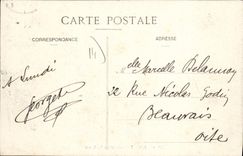 CARTE POSTALE
CORRESPONDANCE
ADRESSE
à Lundi
Georgette
Marcelle Delaunay
32 Rue Nicolas Godin
Beauvais
Oise